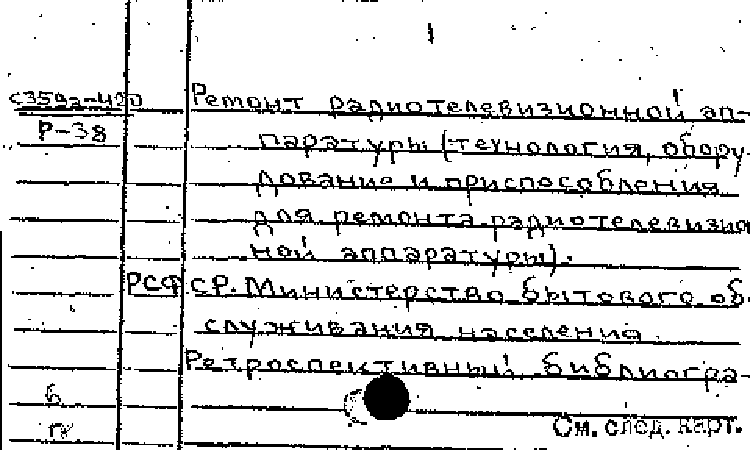 С3592-420 Ремонт радиотелевизионной ап-
Р-38 паратуры (технология, обору-
дование и приспособления
для ремонта радиотелевизион
ной аппаратуры).
РСФСР. Министерство бытового об-
служивания населения
Ретроспективный библиогра-
См. след. карт.